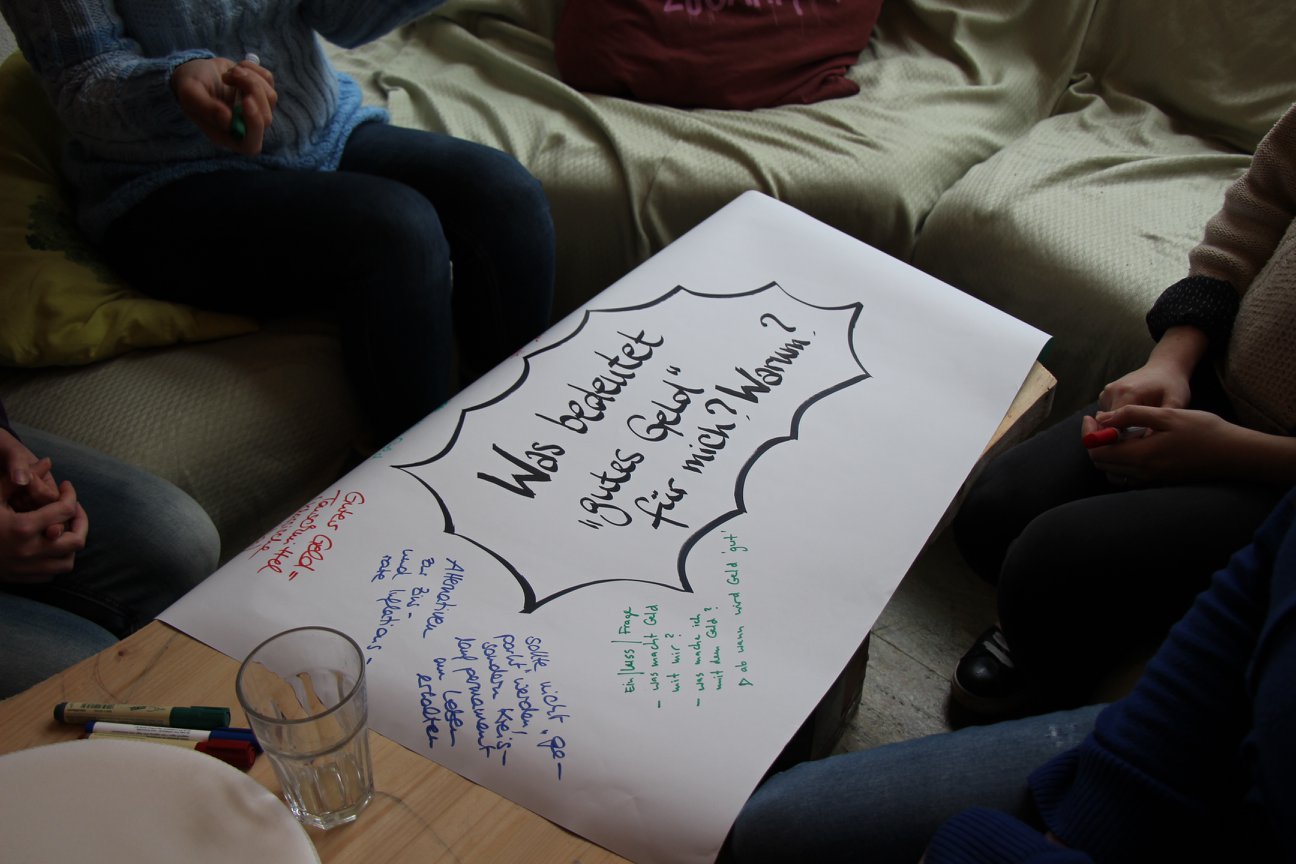 Was bedeutet
"gutes Geld"
für mich? Warum?
Gutes Geld"
Tauschmittel
Alternativen
zur Zins-
und Inflations-
rate
sollte nicht „ge-
parkt" werden,
sondern Kreis-
lauf permanent
am Leben
erhalten
Ein / Frage
- was macht Geld
mit mir?
- was mache ich
mit dem Geld?
▷ ab wann wird Geld 'gut'